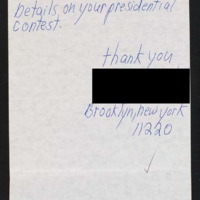 Details, on your presidential
contest.
thank you
Brooklyn, new york
11220